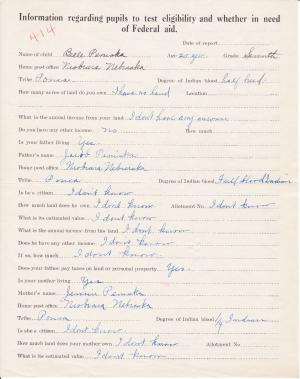 Information regarding pupils to test eligibility and whether in need
of Federal aid.
414
Date of report
Name of child Belle Peniska Age 20 yrs. Grade Seventh
Home post office Niobrara Nebraska
Tribe Ponca Degree of Indian blood half breed
How many acres of land do you own I have no land Location
What is the annual income from your land I dont have any
Do you have any other income. no How much
Is your father living Yes.
Father's name Jacob Peniska
Home post office Niobrara Nebraska
Tribe Ponca Degree of Indian blood Full blood Indian
Is he a citizen I dont know
How much land does he own I dont know Allotment No. I dont know
What is its estimated value I dont know
What is the annual income from his land I dont know.
Does he have any other income I dont know
If so, how much I dont know.
Does your father pay taxes on land or personal property. Yes.
Is your mother living Yes
Mother's name Jennie Peniska
Home post office Niobrara Nebraska
Tribe Ponca Degree of Indian blood 1/4 Indian
Is she a citizen I dont know
How much land does your mother own I dont know Allotment No
What is its estimated value I dont know